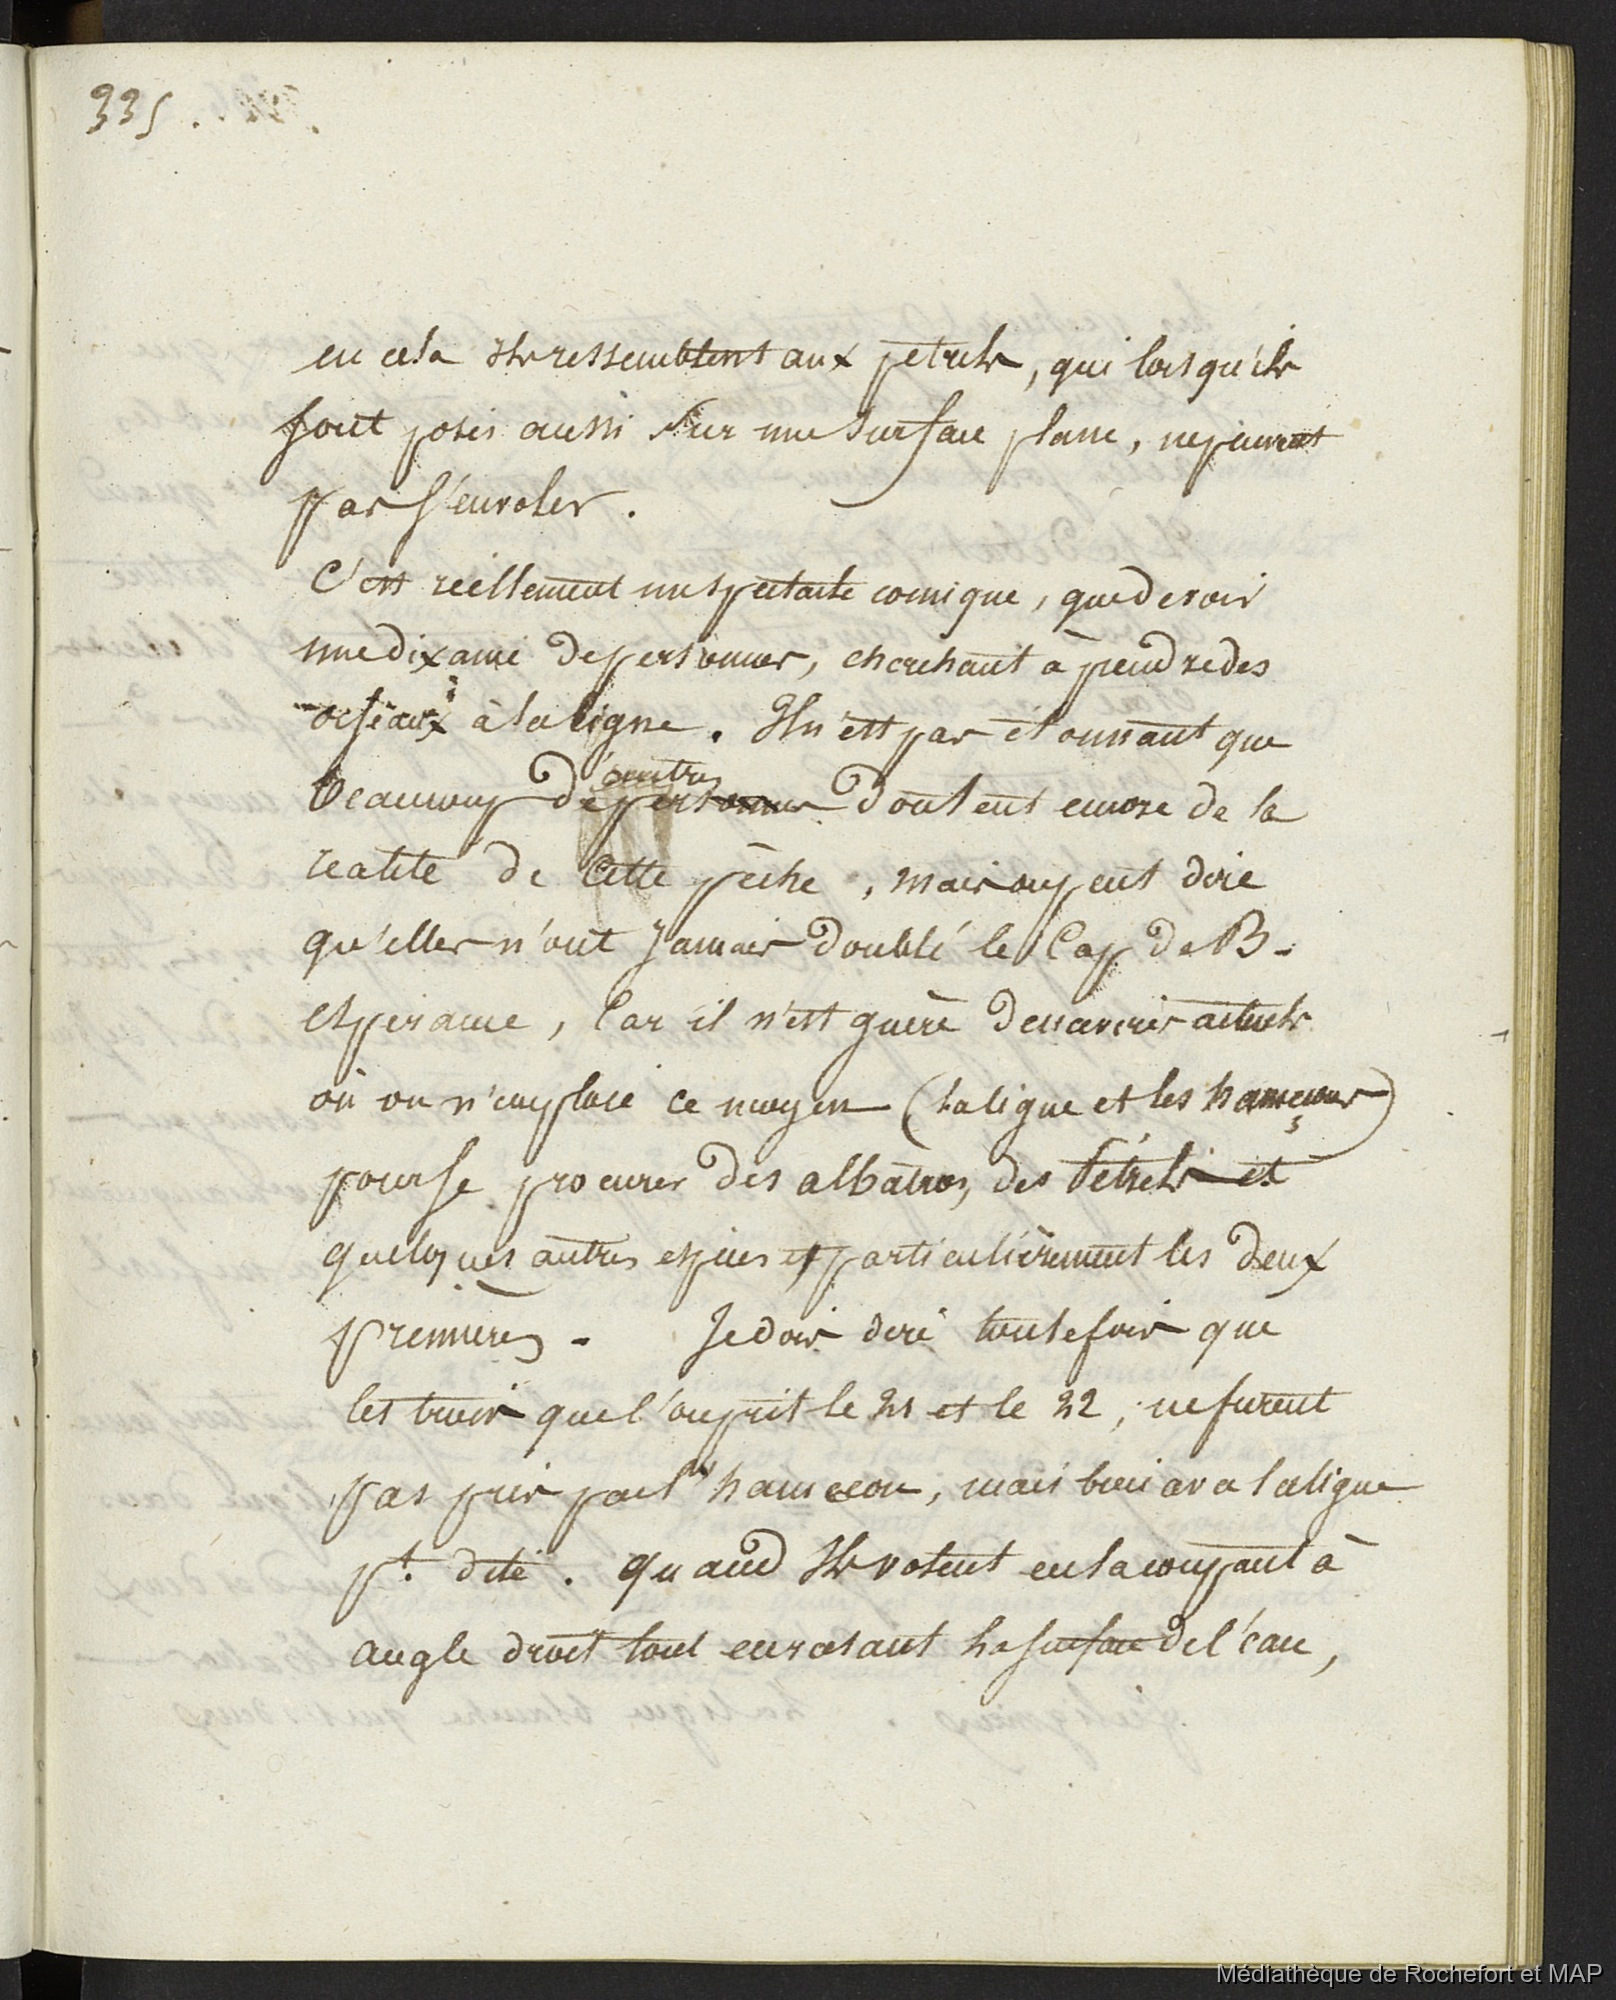 335.
en cela ils ressemblent aux petrels, qui lorsqu'ils
sont posés aussi sur une surface plane, ne peuvent
pas s'envoler.
C'est réellement un spectacle comique, que de voir
une dixaine de personnes, cherchant à prendre des
oiseaux à la ligne. Il n'est pas étonnant que
autres
beaucoup de personnes doutent encore de la
realité de cette pèche, mais on peut dire
qu'elles n'ont jamais doublé le Cap de B-
esperance, Car il n'est guère de navires actuels
où on n'emploie ce moyen (la ligne et les hameçons)
pour se procurer des albatros, des Pétrels et
quelques autres espèces et particulièrement les deux
premières. Je dois dire toutefois que
les trois que l'on prit le 21 et le 22, ne furent
pas pris par l'hameçon, mais bien av a la ligne
pt. dite. Quand ils volent en la coupant à
angle droit tout en rasant la surface de l'eau,
Médiathèque de Rochefort et MAP